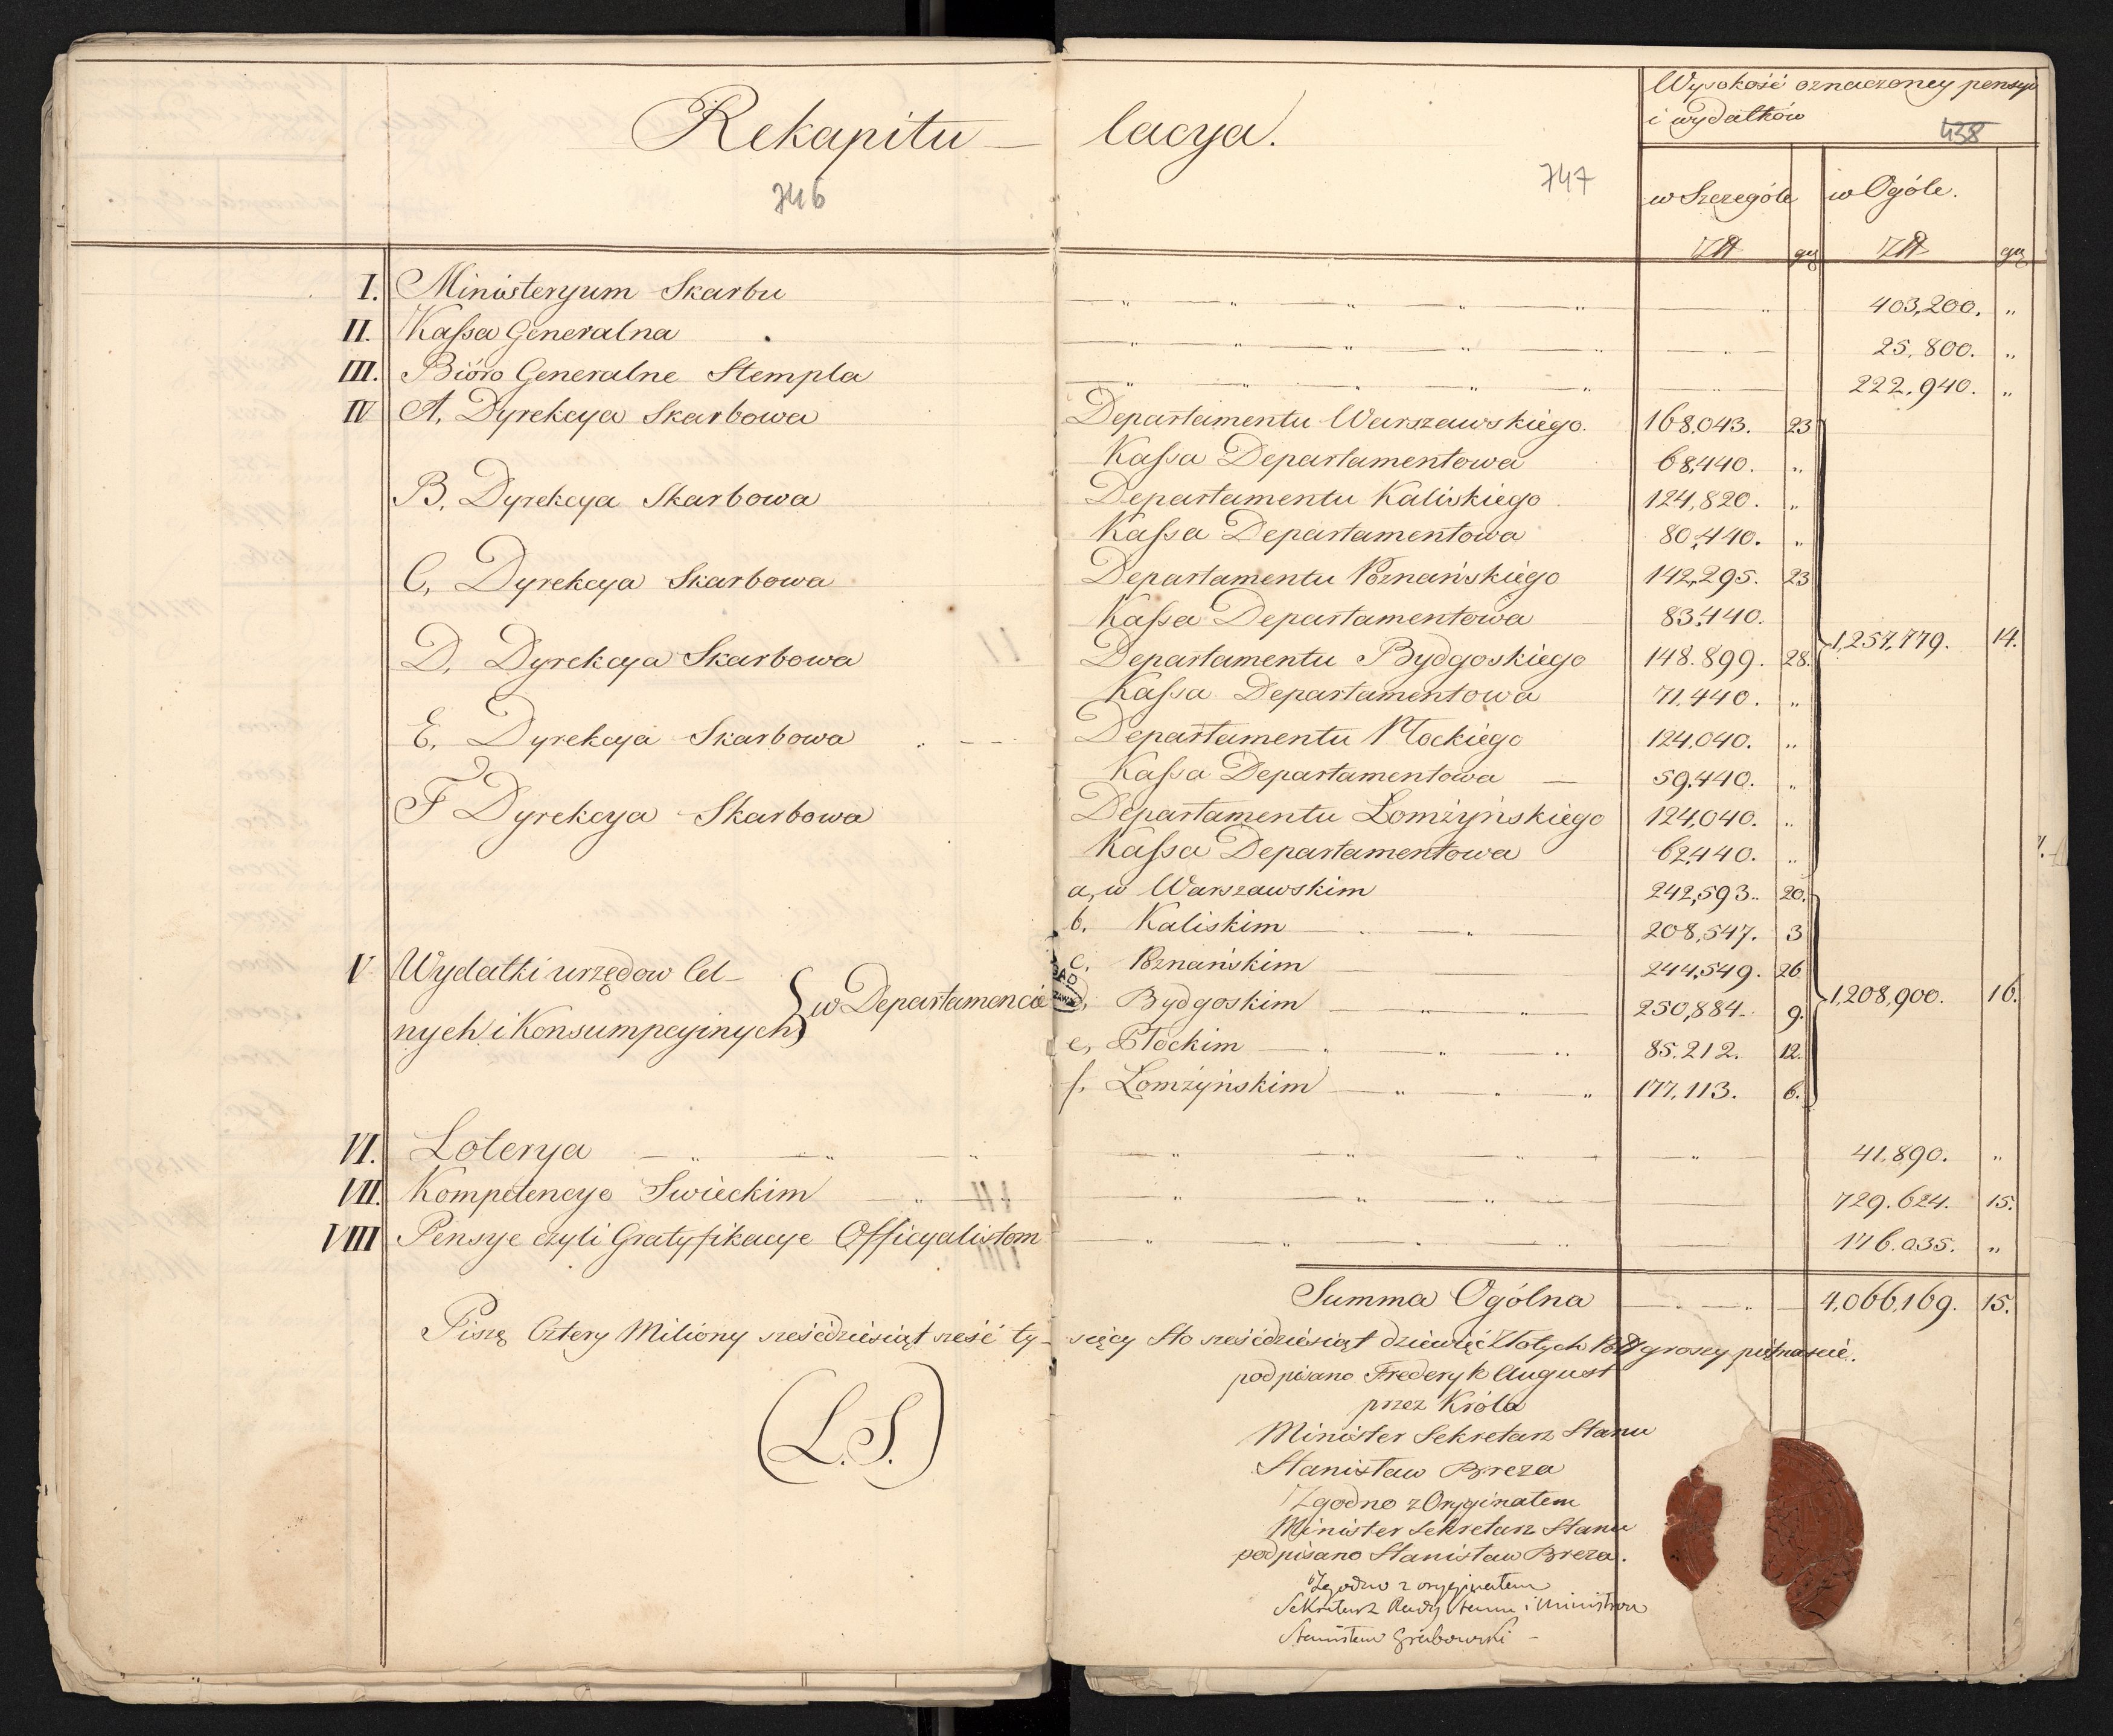 Rekapitu— lacya.
746
747
Wysokość oznaczoney pensyi
i wydatków
438
w Szczególe w Ogóle.
Złł gr Złł gr
I. Ministeryum Skarbu 403,200. „
II. Kassa Generalna 25,800. „
III. Biόro Generalne Stempla 222,940. „
IV A, Dyrekcya Skarbowa Departamentu Warszawskiego. 168,043. 23
Kassa Departamentowa 68,440. „
B, Dyrekcya Skarbowa Departamentu Kaliskiego 124,820. „
Kassa Departamentowa 80,440. „
C, Dyrekcya Skarbowa Departamentu Poznańskiego 142,295. 23
Kassa Departamentowa 83,440.
D, Dyrekcya Skarbowa Departamentu Bydgoskiego 148.899. 28. 1,257,779. 14.
Kassa Departamentowa 71,440. „
E, Dyrekcya Skarbowa Departamentu Płockiego 124,040. „
Kassa Departamentowa 59,440. „
F Dyrekcya Skarbowa Departamentu Lomżyńskiego 124,040. „
Kassa Departamentowa 62,440. „
a, w Warszawskim 242,593. 20.
b. Kaliskim 208,547. 3
V Wydatki urzędow Cel— c. Poznańskim 244,549. 26
nych i Konsumpcyinych w Departamencie Bydgoskim 250,884. 9. 1,208,900. 16.
e, Płockim 85.212. 12.
f. Lomżyńskim 177,113. 6.
VI. Loterya 41,890. „
VII. Kompetencye Swieckim 729.624. 15.
VIII Pensye czyli Gratyfikacye Officyalistom 176.035. „
Summa Ogólna 4,066,169. 15.
Piszę Cztery Miliony sześćdziesiąt sześć ty— sięcy Sto sześćdziesiąt dziewięć Złotych Pol groszy piętnaście.
(L.S.)
podpisano Frederyk August
przez Króla
Minister Sekretarz Stanu
Stanisław Breza
Zgodno z Oryginałem
Minister Sekretarz Stanu
podpisano Stanisław Breza.
Zgodno z oryginałem
Sekretarz Rady Stanu i Ministrow
Stanisław Grabowski